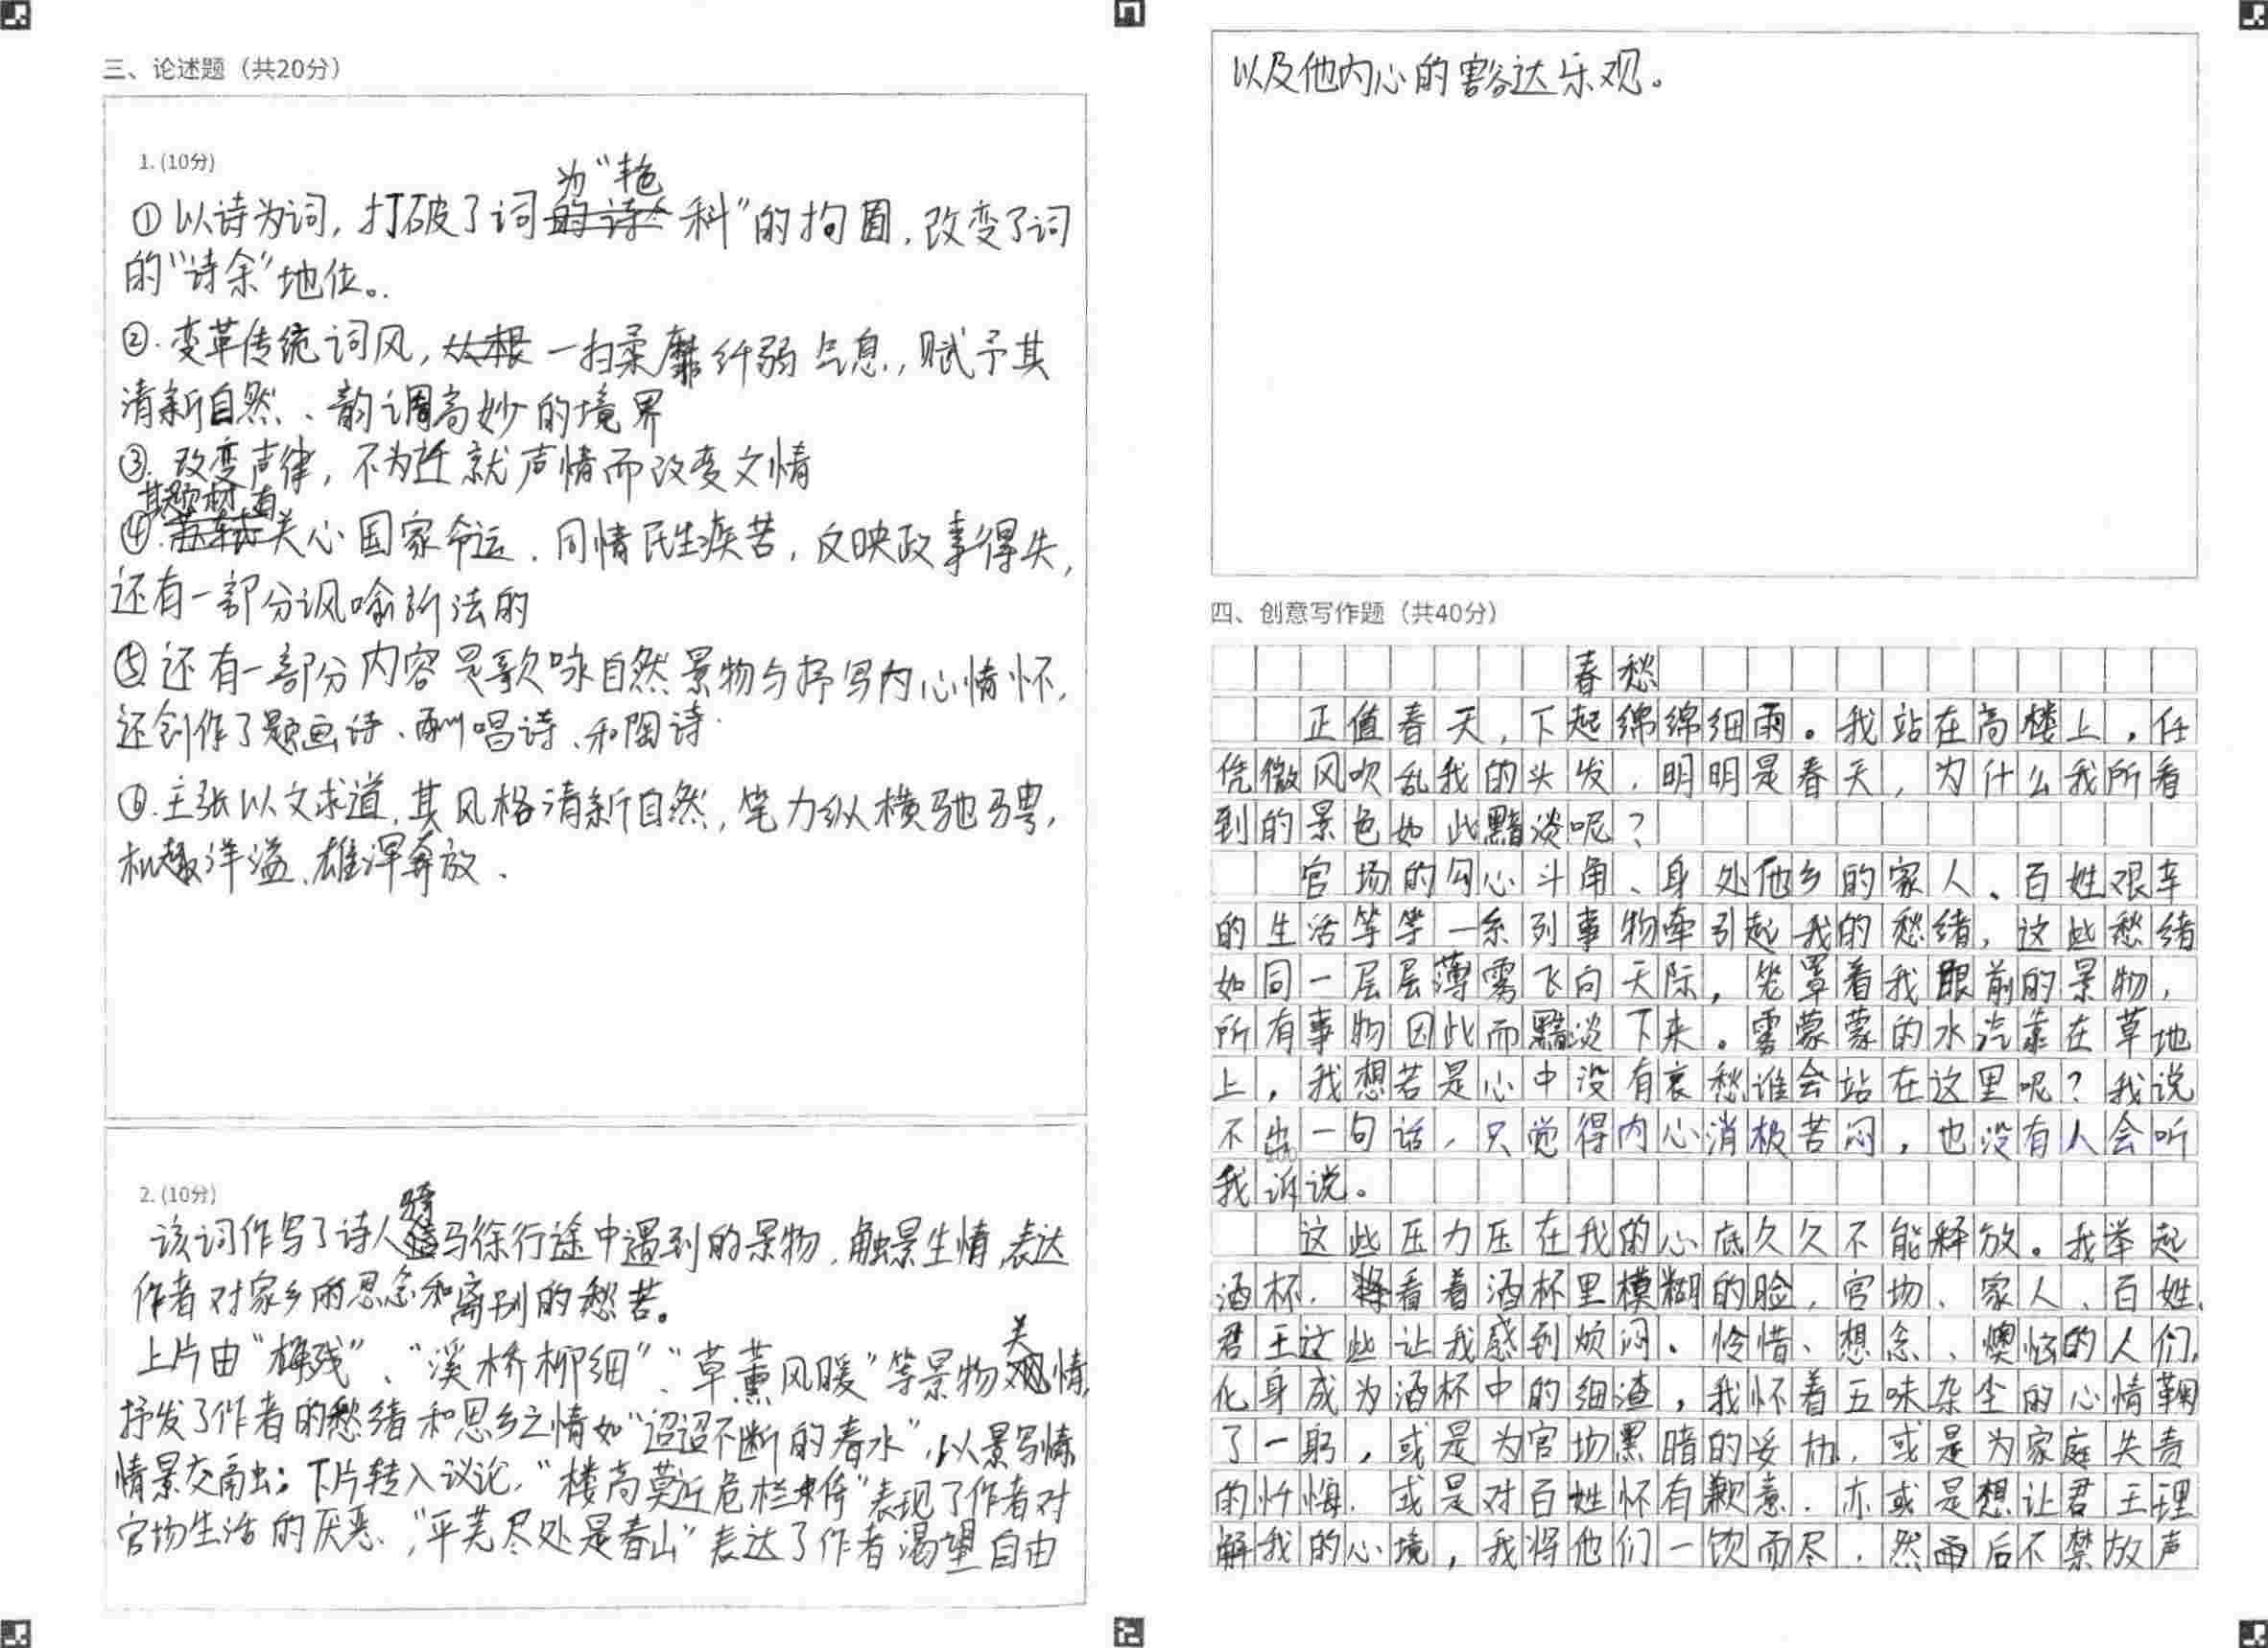 三、论述题（共20分）
1.(10分)
①以诗为词，打破了词为“艳科”的拘囿，改变了词
的“诗余”地位。
②.变革传统词风，一扫柔靡纤弱气息，赋予其
清新自然、韵调高妙的境界
③.改变声律，不为迁就声情而改变文情
④.其题材有关心国家命运、同情民生疾苦，反映政事得失，
还有一部分讽喻新法的
⑤还有一部分内容是歌咏自然景物与抒写内心情怀，
还创作了题画诗、酬唱诗、和陶诗.
⑥.主张以文求道，其风格清新自然，笔力纵横驰骋，
机趣洋溢、雄浑奔放、
2.(10分)
该词作写了诗人骑马徐行途中遇到的景物，触景生情，表达
作者对家乡的思念和离别的愁苦。
上片由“梅残”、“溪桥柳细”、“草薰风暖”等景物关情，
抒发了作者的愁绪和思乡之情如“迢迢不断的春水”，以景写情，
情景交融；下片转入议论，“楼高莫近危栏倚”表现了作者对
官场生活的厌恶、，“平芜尽处是春山”表达了作者渴望自由
以及他内心的豁达乐观。
四、创意写作题（共40分）
春愁
正值春天，下起绵绵细雨。我站在高楼上，任
凭微风吹乱我的头发，明明是春天，为什么我所看
到的景色如此黯淡呢？
官场的勾心斗角、身处他乡的家人、百姓艰辛
的生活等等一系列事物牵引起我的愁绪，这些愁绪
如同一层层薄雾飞向天际，笼罩着我眼前的景物，
所有事物因此而黯淡下来。雾蒙蒙的水汽靠在草地
上，我想若是心中没有哀愁谁会站在这里呢？我说
不出一句话，只觉得内心消极苦闷，也没有人会听
我诉说。
这些压力压在我的心底久久不能释放。我举起
酒杯，看着酒杯里模糊的脸，官场、家人、百姓、
君王这些让我感到烦闷、怜惜、想念、懊恼的人们，
化身成为酒杯中的细渣，我怀着五味杂尘的心情鞠
了一躬，或是为官场黑暗的妥协，或是为家庭失责
的忏悔，或是对百姓怀有歉意，亦或是想让君王理
解我的心境，我将他们一饮而尽，然后不禁放声